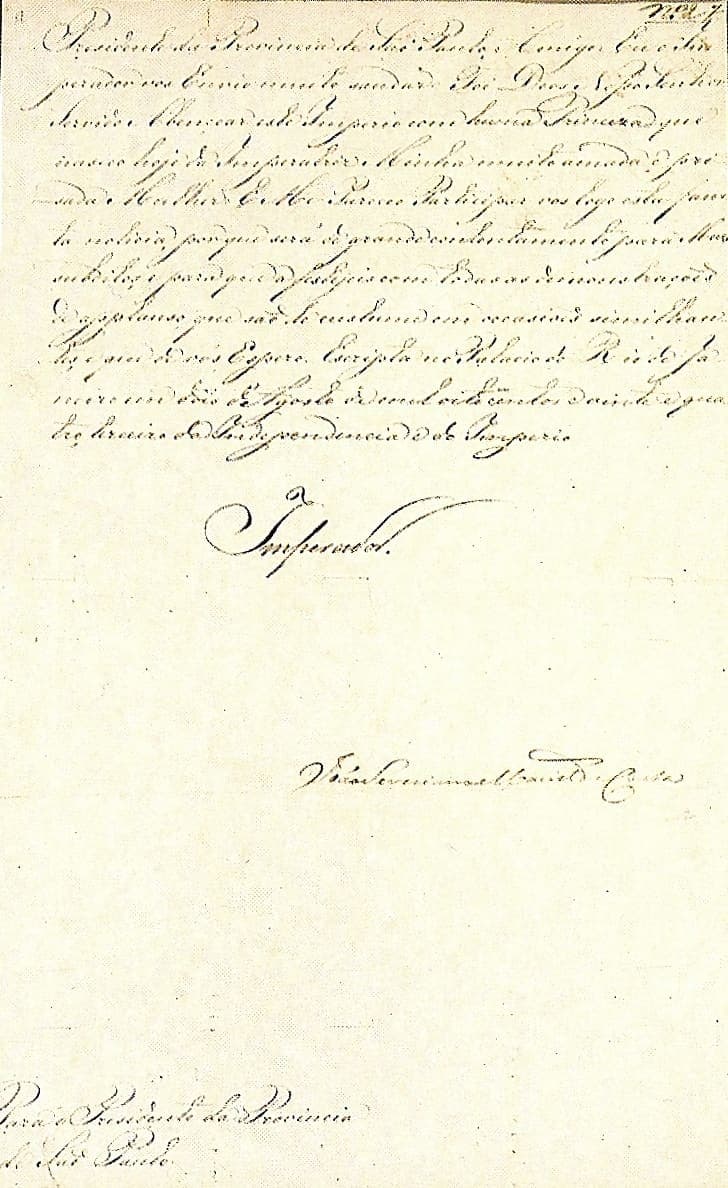 Presidente da Provincia de São Paulo, Amigo. Eu o Im-
perador vos Envio muito saudar. Foi Deos Nosso Senhor
Servido Abençoar este Imperio com huma Princeza, que
nasceo hoje da Imperatriz Minha muito amada, e pre-
sada Mulher. E Me Pareceo Participar vos logo esta faus-
ta noticia, porque será de grande contentamento para Meus
subditos, e para que a festejeis com todas as demonstrações
de applauso, que são de custume em occasiões similhan-
tes, e que de vós Espero. Escripta no Palacio do Rio de Ja-
neiro em dois de Agosto de mil oitocentos e vinte e qua-
tro, terceiro da Independencia e do Imperio
Imperador.
João Severiano Maciel da Costa
Para o Presidente da Provincia
de São Paulo.